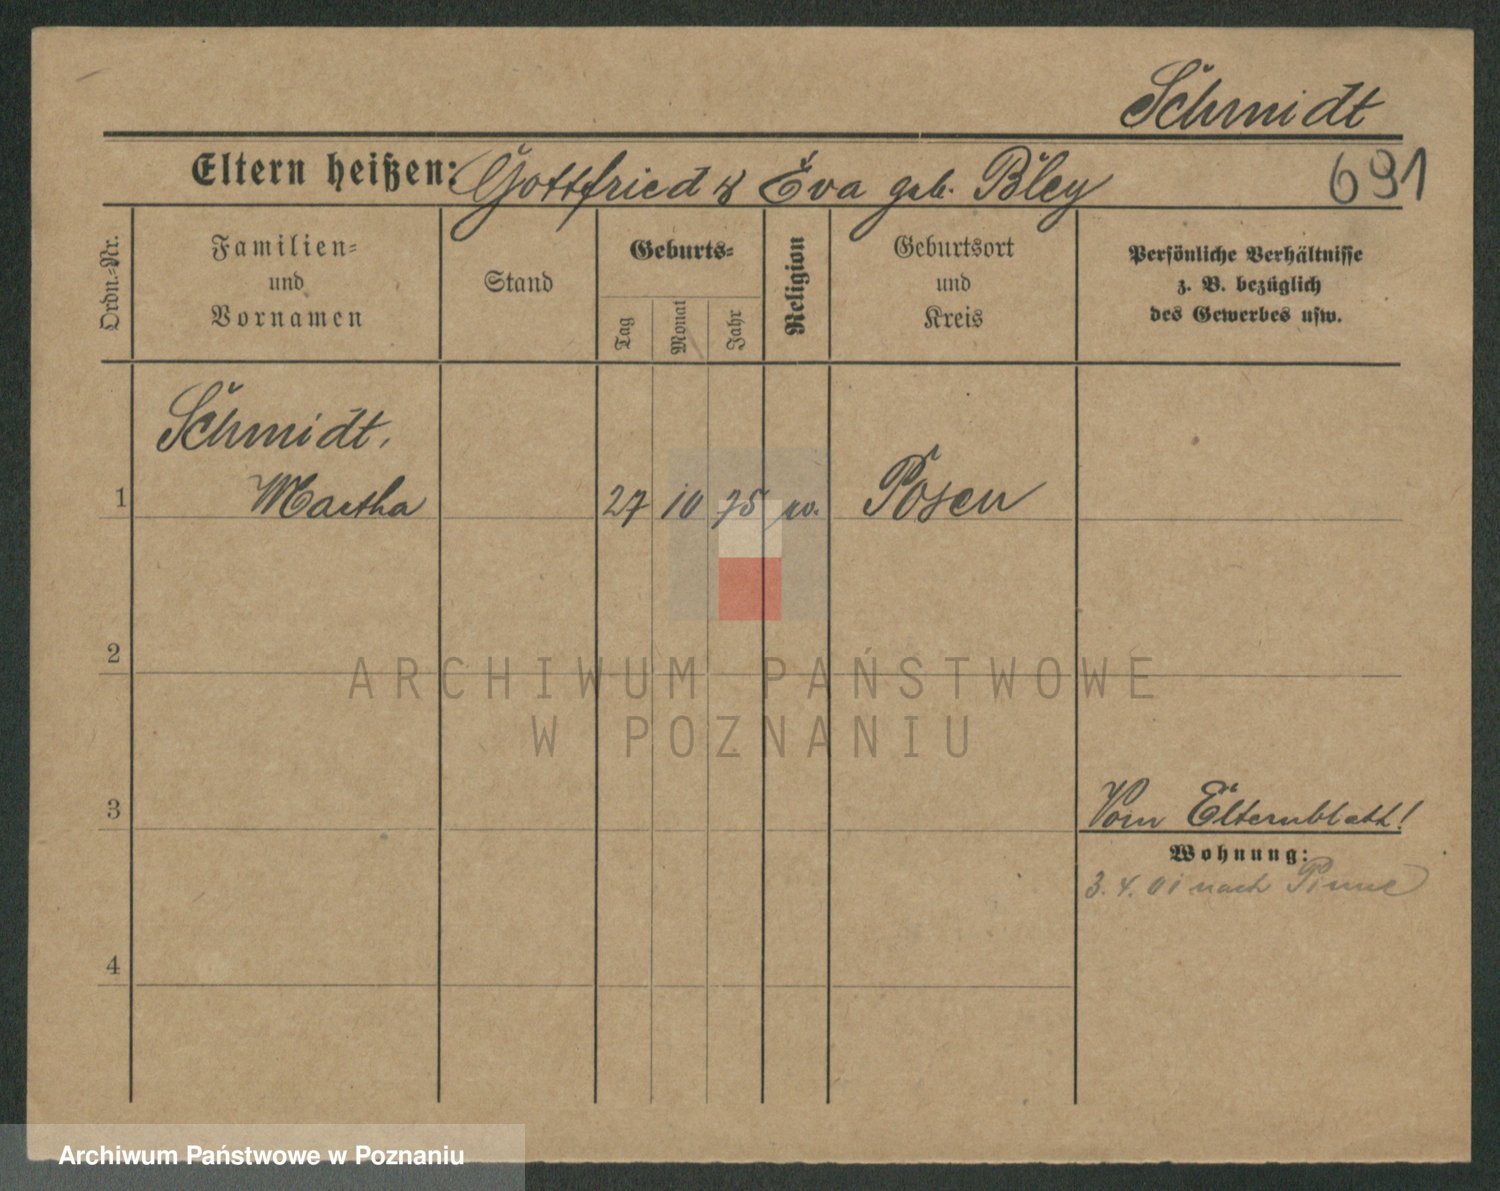 Schmidt
Eltern heißen: Gottfried & Eva geb. Bley
691
Ordn.-Nr.
Familien-
und
Vornamen
Stand
Geburts-
Tag
Monat
Jahr
Religion
Geburtsort
und
Kreis
Persönliche Verhältnisse
z. B. bezüglich
des Gewerbes usw.
Schmidt,
1 Martha 27 10 75 Posen
2
ARCHIWUM PAŃSTWOWE
W POZNANIU
3
Vom Elternblatt!
Wohnung:
3. 4. 01 nach Pinne
4
Archiwum Państwowe w Poznaniu